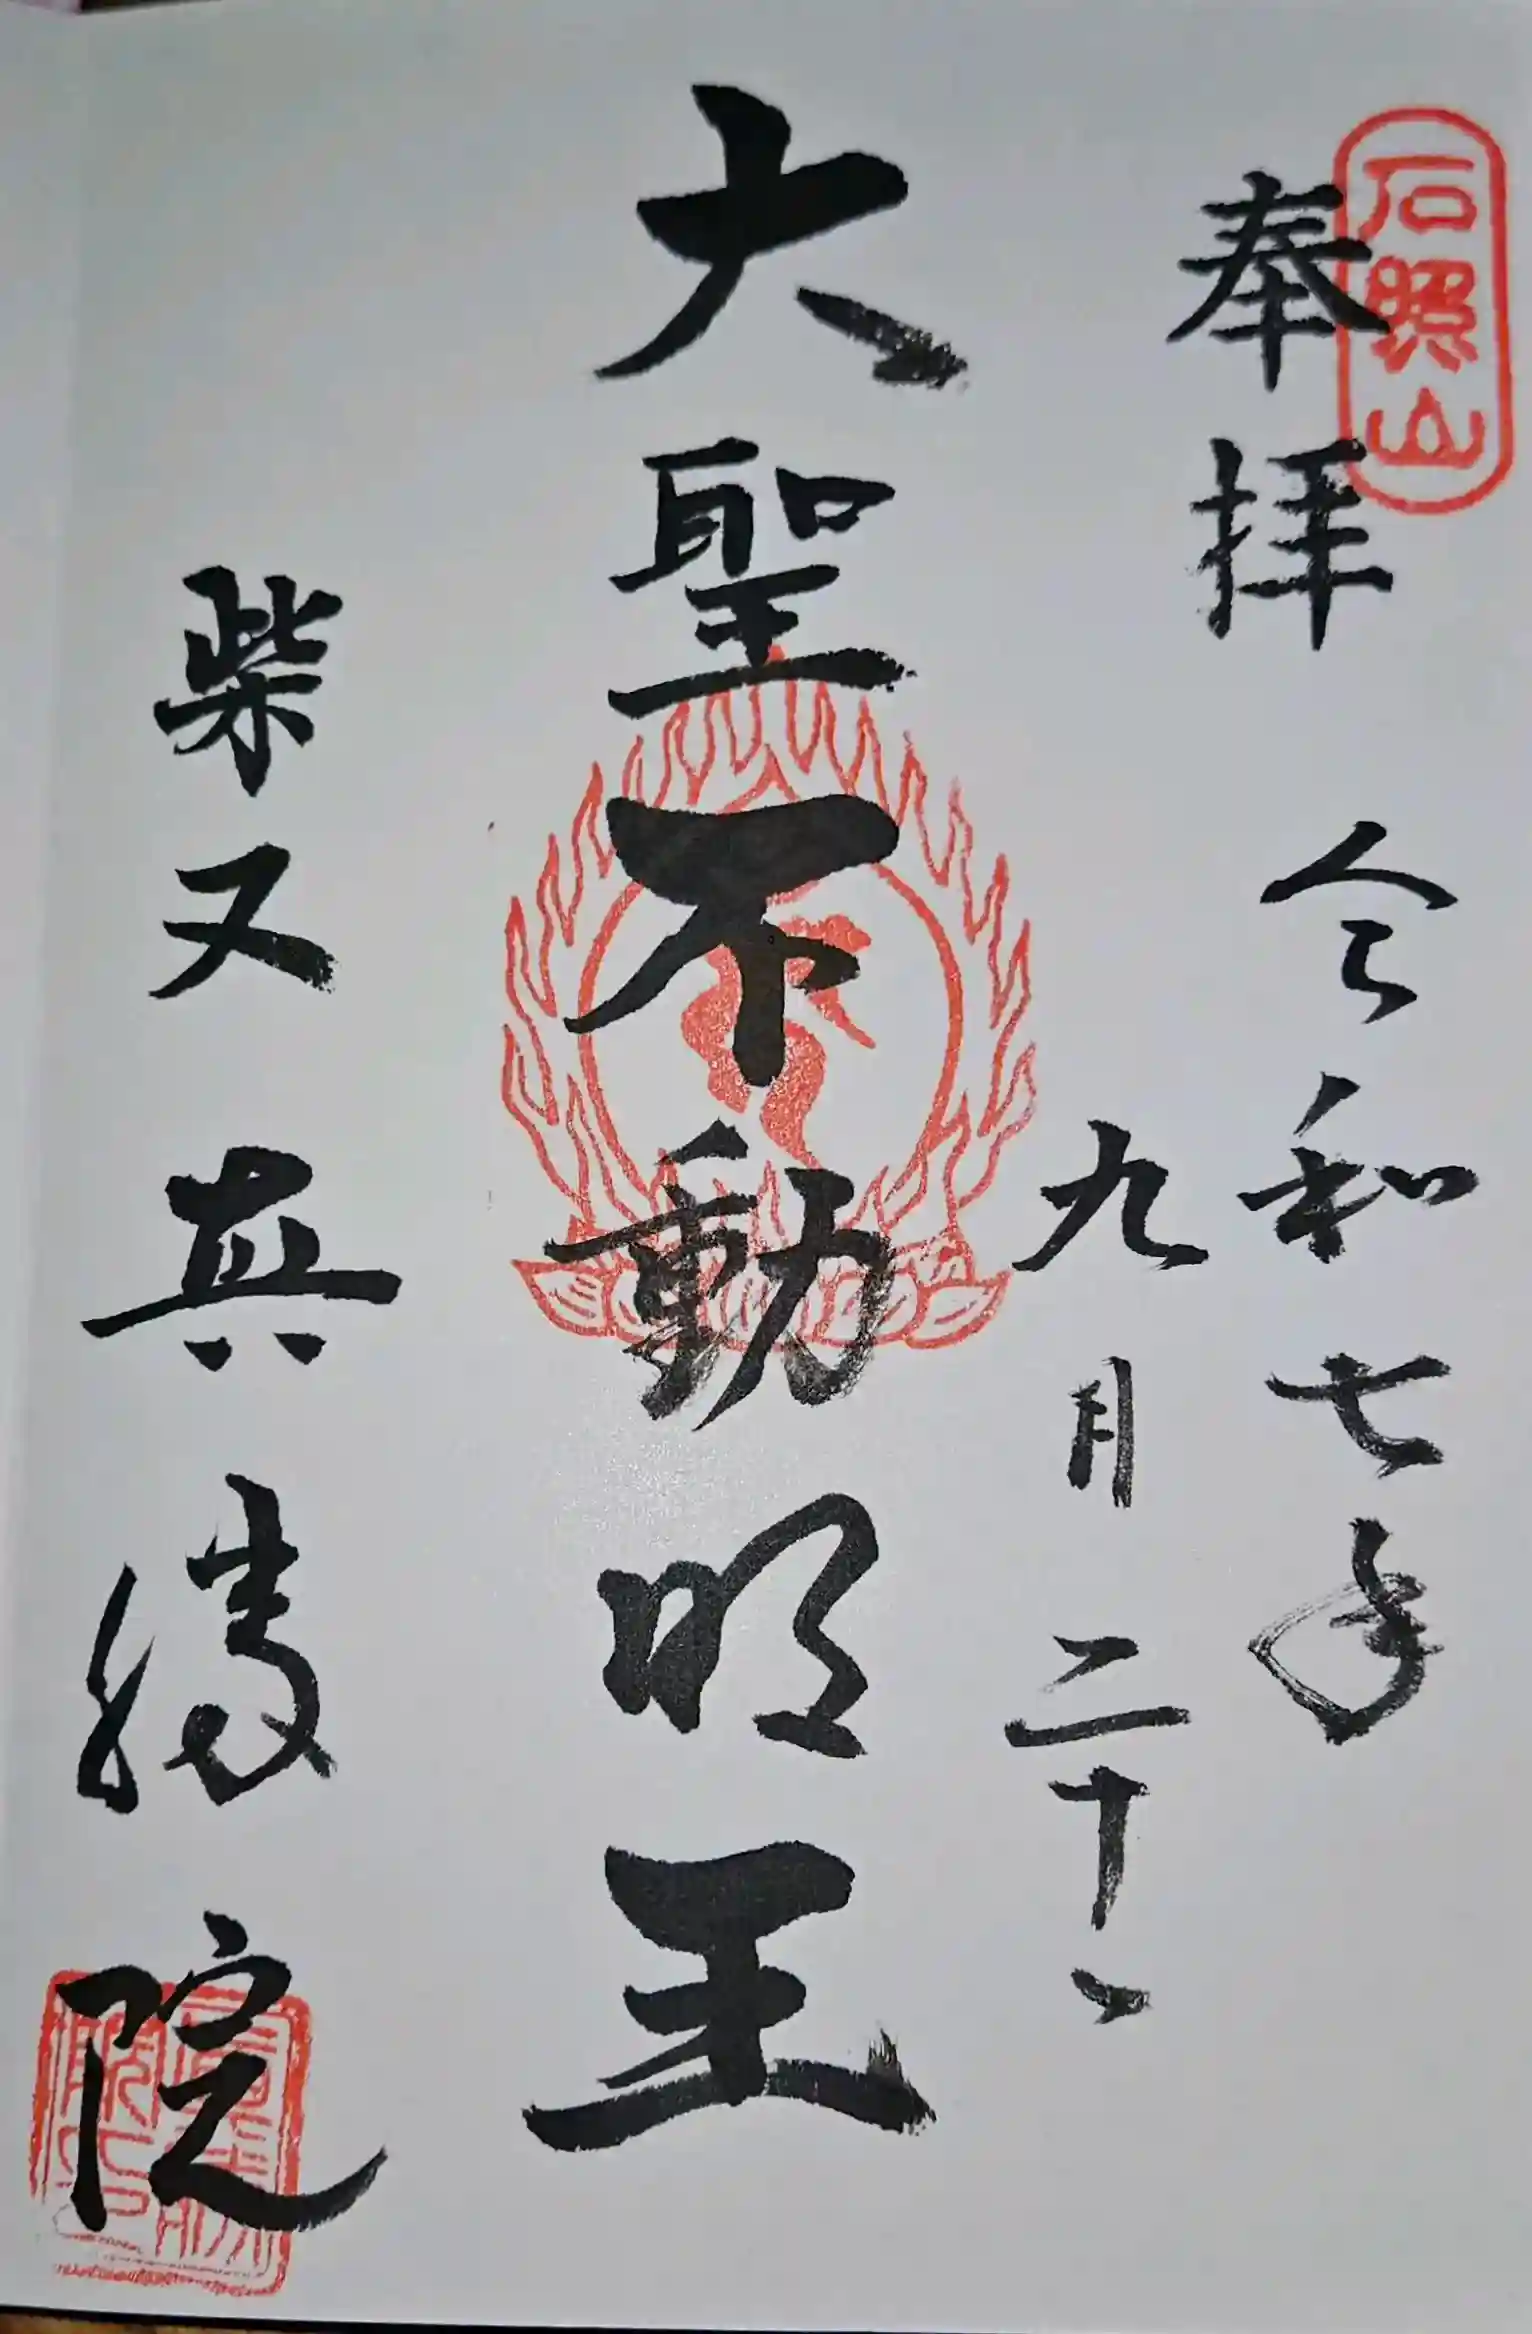 石照山
奉拝
令和七年
九月二十一
大聖不動明王
柴又真勝院